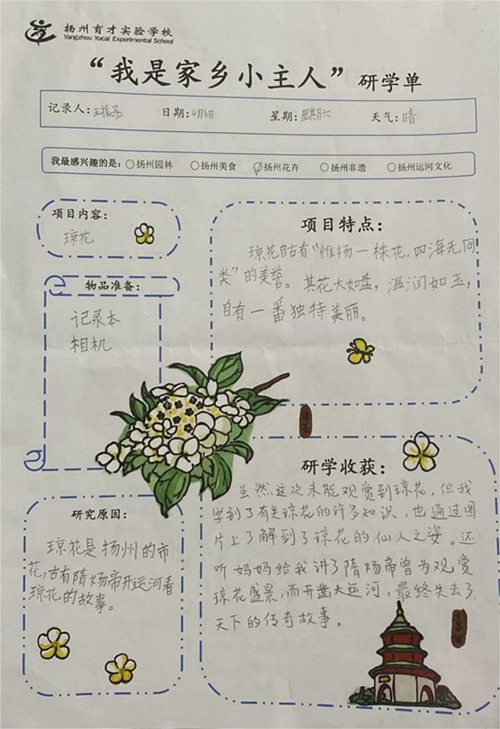 扬州育才实验学校
Yangzhou Yucai Experimental School
“我是家乡小主人”研学单
记录人: 日期:4月6日 星期:星期六 天气:晴
我最感兴趣的是: 扬州园林 扬州美食 扬州花卉 扬州非遗 扬州运河文化
项目内容:
琼花
物品准备:
记录本
相机
研究原因:
琼花是扬州的市
花,古有隋炀帝开运河看
琼花的故事。
项目特点:
琼花自古有“维扬一株花,四海无同
类”的美誉。其花大如盘,温润如玉,
自有一番独特美丽。
研学收获:
虽然这次未能观赏到琼花,但我
学到了有关琼花的许多知识,也通过图
片上了解到了琼花的仙人之姿。还
听妈妈给我讲了隋炀帝曾为观赏
琼花盛景,而开凿大运河,最终失去了
天下的传奇故事。